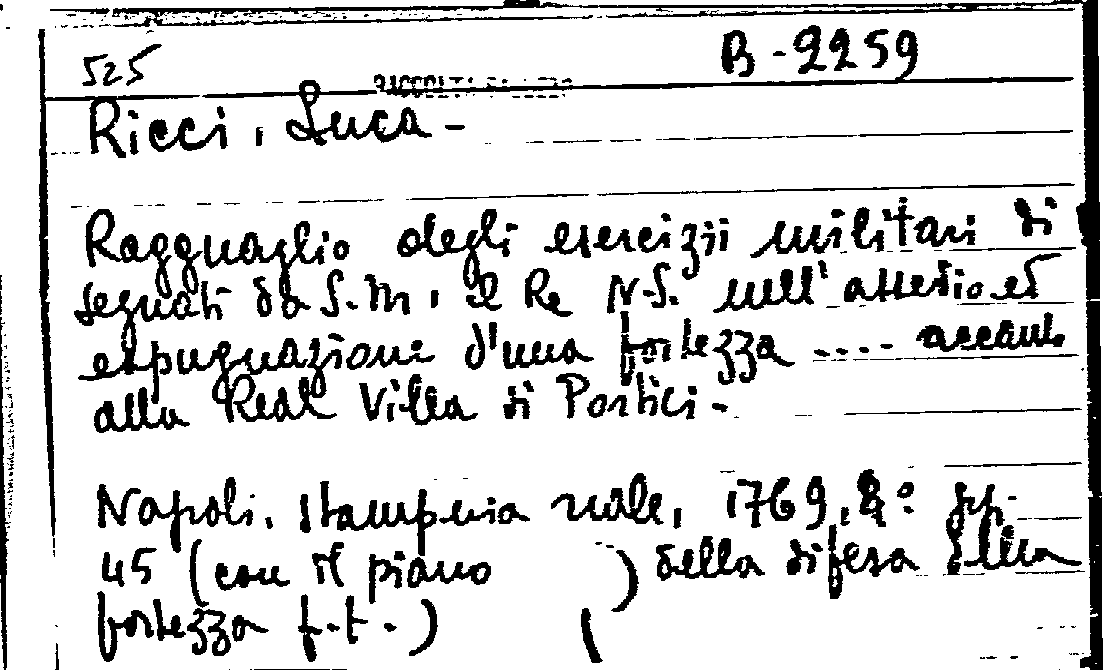 525 B-2259
Ricci, Luca -
Ragguaglio degli esercizii militari di
segnati da S.M. il Re N.S. nell'assedio ed
espugnazione d'una fortezza .... accanto
alla Real Villa di Portici -
Napoli. Stamperia reale, 1769, 8° pp.
45 (con il piano ) della difesa della
fortezza f.t.)